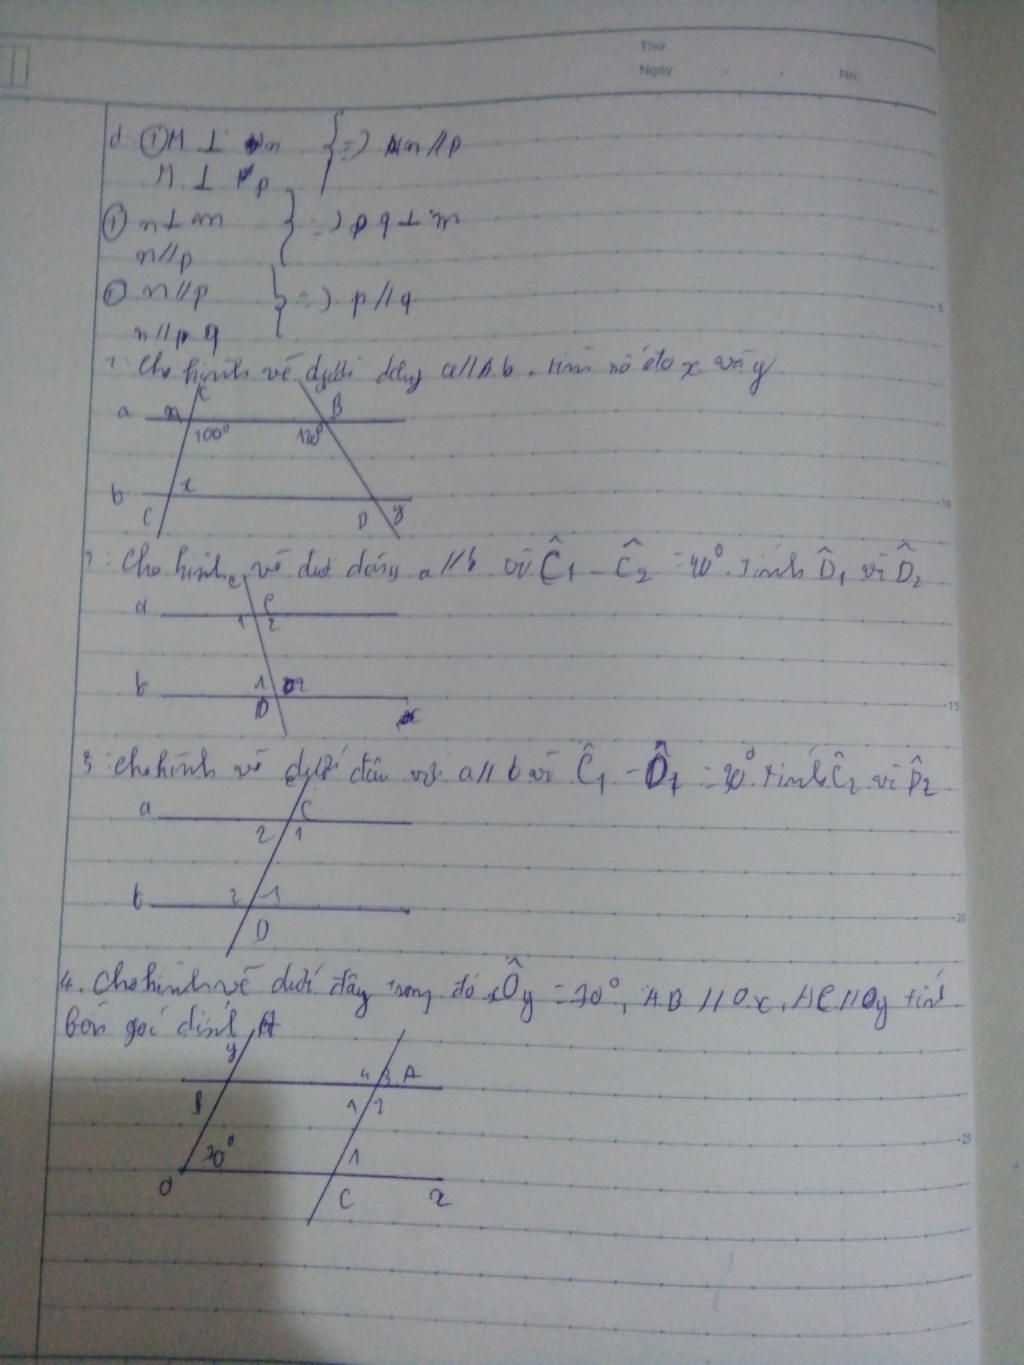 Thứ
Ngày No.
d ① M ⊥ n } => n // p
M ⊥ p
① n ⊥ m } => q ⊥ m
n // p
n // p } => p // q
n // q
Cho hình vẽ dưới đây a // b. tính số đo x và y
a B
100° 120°
b x
C D y
Cho hình vẽ dưới đây a // b và Ĉ₁ - Ĉ₂ = 40°. Tính D̂₁ và D̂₂
a C
1 2
b 1 2
D
3 Cho hình vẽ dưới đây a // b Ĉ₁ - D̂₁ = 30° tính Ĉ₂ và D̂₂
a C
2 1
b 2 1
D
4. Cho hình vẽ dưới đây trong đó xÔy = 70°, AB // Ox, AC // Oy tính
bốn góc đỉnh A
y 4 3 A
B 1 2
70° 1
O C x